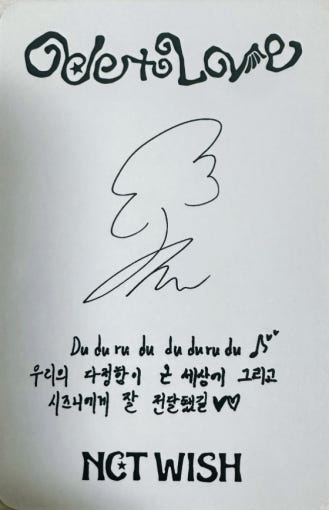 Ode to Love
Du du ru du du du ru du
우리의 다정함이 온 세상에 그리고
시즈니에게 잘 전달됐길
NCT WISH